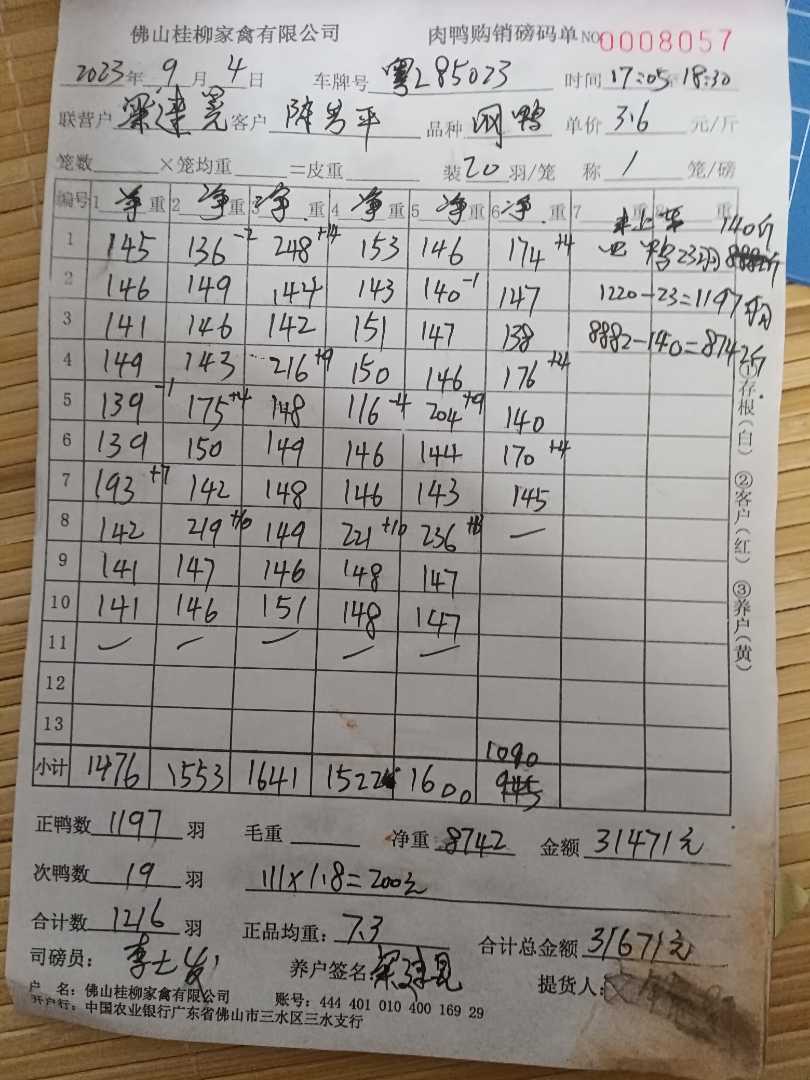 佛山桂柳家禽有限公司 肉鸭购销磅码单 NO 0008057
2023年 9月 4日 车牌号 粤L85023 时间 17:05 18:30
联营户 梁建 客户 陈 平 品种 鸭 单价 3.6 元/斤
笼数 ×笼均重 =皮重 装 20 羽/笼 称 1 笼/磅
编号 1 净重 2 净重 3 净重 4 净重 5 净重 6 净 7 重 重
未上车 140斤
1 145 136 -2 248 +4 153 146 174 +4 鸭23羽
2 146 149 144 143 140 -1 147 1220-23=1197羽
3 141 146 142 151 147 138 8882-140=8742斤
4 149 143 216 +9 150 146 176 +4
5 139 -1 175 +4 148 116 -4 204 +9 140
6 139 150 149 146 144 170 +4
7 193 +7 142 148 146 143 145
8 142 219 +10 149 221 +10 236 —
9 141 147 146 148 147
10 141 146 151 148 147
11 — — — — —
12
13
1090
小计 1476 1553 1641 1522 1600
①存根(白) ②客户(红) ③养户(黄)
正鸭数 1197 羽 毛重 净重 8742 金额 31471元
次鸭数 19 羽 111×1.8=200元
合计数 1216 羽 正品均重: 7.3 合计总金额 31671元
司磅员: 李士 养户签名: 梁建 提货人:
户 名: 佛山桂柳家禽有限公司 账号: 444 401 010 400 169 29
开户行: 中国农业银行广东省佛山市三水区三水支行